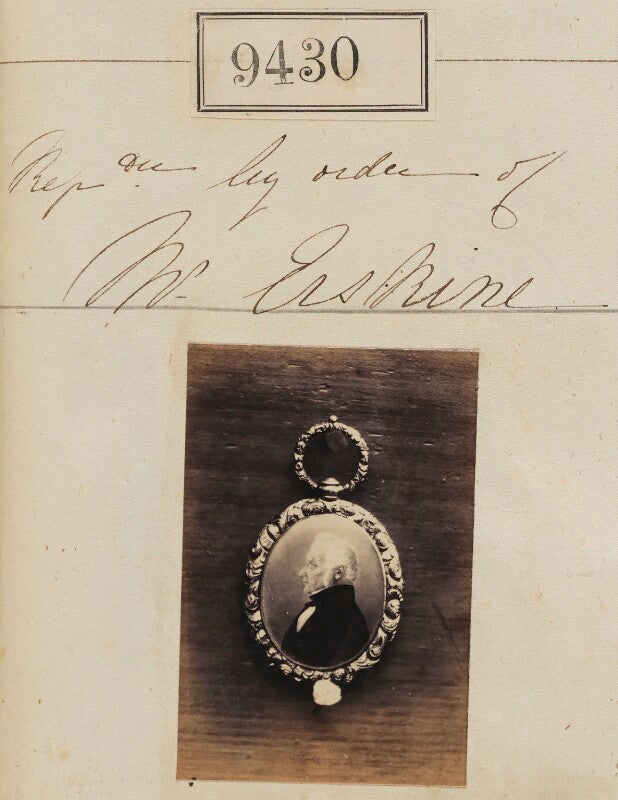 9430
Rep on by order of
Mr Erskine